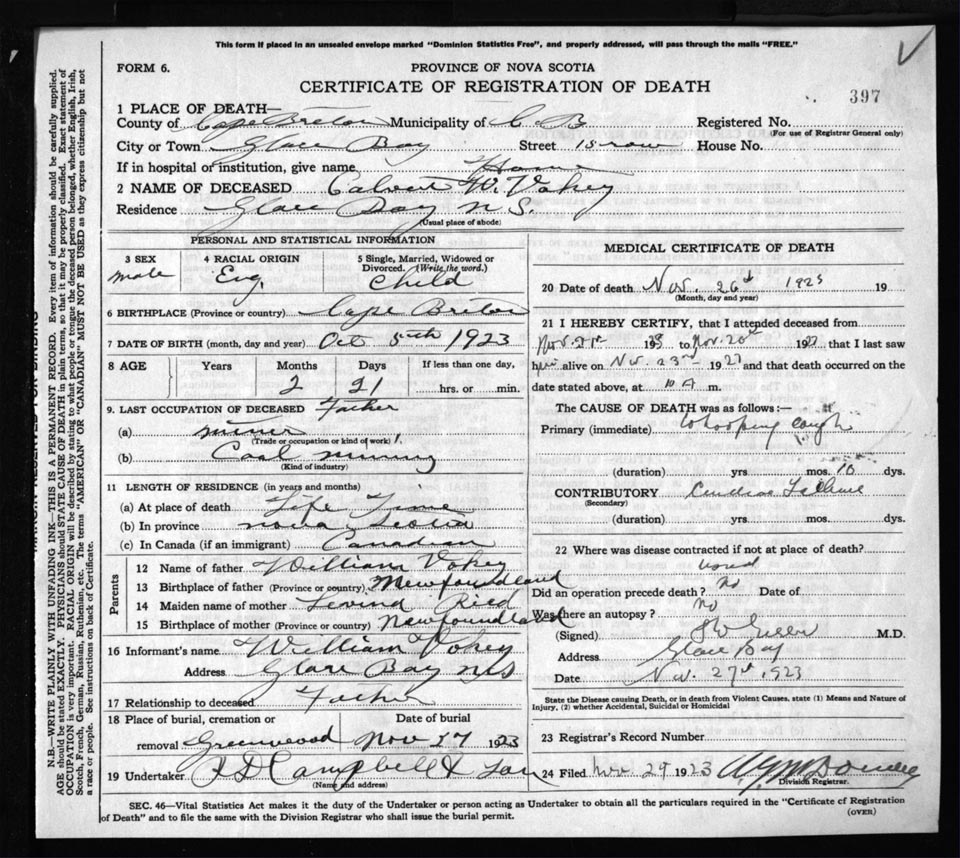 This form if placed in an unsealed envelope marked "Dominion Statistics Free", and properly addressed, will pass through the mails "FREE."
FORM 6.
PROVINCE OF NOVA SCOTIA
CERTIFICATE OF REGISTRATION OF DEATH
397
1 PLACE OF DEATH—
County of Cape Breton Municipality of C B Registered No.
(For use of Registrar General only)
City or Town Glace Bay Street 15 row House No.
If in hospital or institution, give name Home
2 NAME OF DECEASED Calvert W. Vokey
Residence Glace Bay N.S.
(Usual place of abode)
PERSONAL AND STATISTICAL INFORMATION
3 SEX
male
4 RACIAL ORIGIN
Eng.
5 Single, Married, Widowed or Divorced. (Write the word.)
Child
6 BIRTHPLACE (Province or country) Cape Breton
7 DATE OF BIRTH (month, day and year) Oct 5th 1923
8 AGE Years Months Days If less than one day,
2 21 hrs. or min.
9. LAST OCCUPATION OF DECEASED Father
(a) miner
(Trade or occupation or kind of work)
(b) Coal mining
(Kind of industry)
11 LENGTH OF RESIDENCE (in years and months)
(a) At place of death Life Time
(b) In province nova Scotia
(c) In Canada (if an immigrant) Canadian
Parents
12 Name of father William Vokey
13 Birthplace of father (Province or country) Newfoundland
14 Maiden name of mother Reid
15 Birthplace of mother (Province or country) Newfoundland
16 Informant's name William Vokey
Address Glace Bay NS
17 Relationship to deceased Father
18 Place of burial, cremation or removal Greenwood
Date of burial Nov 27 1923
19 Undertaker Campbell & Son
(Name and address)
MEDICAL CERTIFICATE OF DEATH
20 Date of death Nov. 26th 1923 19
(Month, day and year)
21 I HEREBY CERTIFY, that I attended deceased from
Nov. 21st 1923 to Nov. 19 that I last saw
alive on Nov. 23rd 19 and that death occurred on
date stated above, at 10 A m.
The CAUSE OF DEATH was as follows:—
Primary (immediate) Whooping cough
(duration) yrs. mos. 10 dys.
CONTRIBUTORY Cardiac Failure
(Secondary)
(duration) yrs. mos. dys.
22 Where was disease contracted if not at place of death?
Did an operation precede death? No Date of
Was there an autopsy? No
(Signed) M.D.
Address Glace Bay
Date Nov. 27th, 1923
State the Disease causing Death, or in death from Violent Causes, state (1) Means and Nature of Injury, (2) whether Accidental, Suicidal or Homicidal
23 Registrar's Record Number
24 Filed Nov. 29 1923
Division Registrar.
SEC. 46—Vital Statistics Act makes it the duty of the Undertaker or person acting as Undertaker to obtain all the particulars required in the "Certificate of Registration
of Death" and to file the same with the Division Registrar who shall issue the burial permit.
(OVER)
N.B.—WRITE PLAINLY WITH UNFADING INK—THIS IS A PERMANENT RECORD. Every item of information should be carefully supplied.
AGE should be stated EXACTLY. PHYSICIANS should STATE CAUSE OF DEATH in plain terms, so that it may be properly classified. Exact statement of
OCCUPATION is very important. RACIAL ORIGIN will be described by stating to what people or tongue the deceased person belonged, whether English, Irish,
Scotch, French, German, Russian, Ruthenian, etc. The terms "AMERICAN" OR "CANADIAN" MUST NOT BE USED as they express citizenship but not
a race or people. See instructions on back of Certificate.